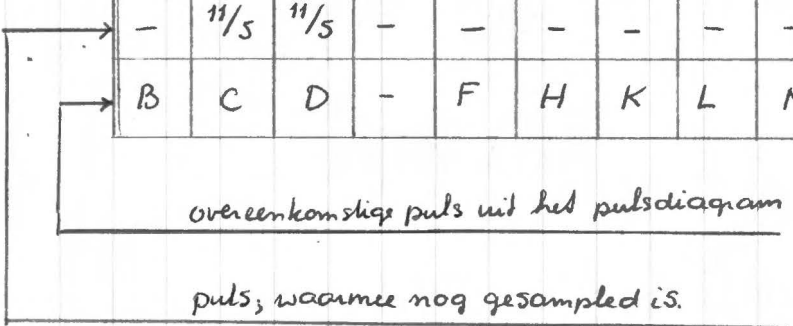 - 11/5 11/5 - - - - - -
B C D - F H K L
overeenkomstige puls uit het pulsdiagram
puls, waarmee nog gesampled is.